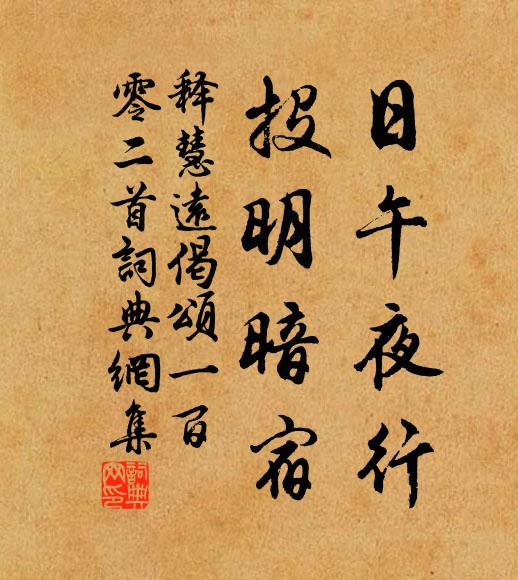 日午夜行
投明暗宿
释慧遠偈頌一百
零二首詞典網集
詞典网印